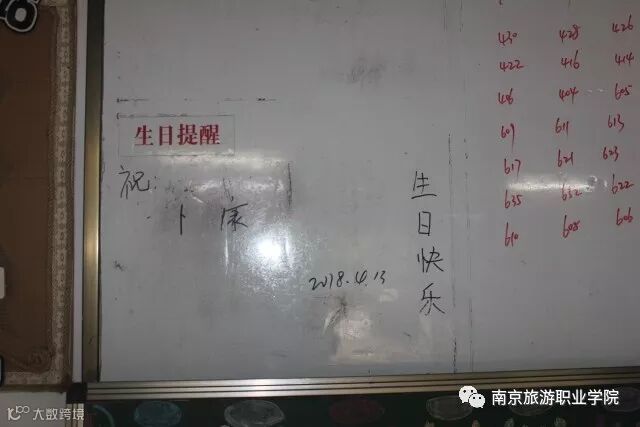 生日提醒
祝:
卜康
生日快乐
2018.4.13
430 428 426
422 416 414
604 605
609 611 613
617 621 623
635 632 622
610 608 606
南京旅游职业学院
大数跨境